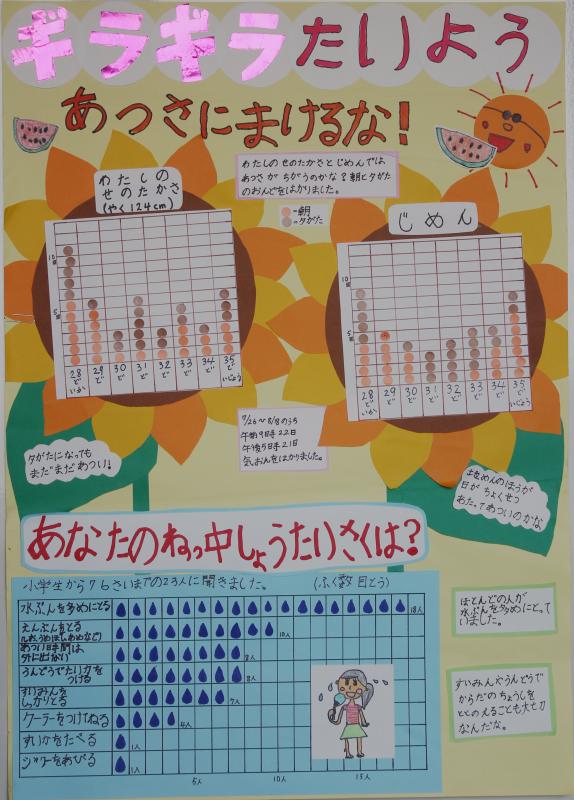 ギラギラたいよう
あっさにまけるな!
わたしの せのたかさとじめんでは
あっさ がちがうのかな?朝と夕がた
のおんどをはかりました。
わたしの
せのたかさ
(やく124cm)
-朝
-夕がた
じめん
10回
5回
28ど いか
29ど
30ど
31ど
32ど
33ど
34ど
35ど いじょう
10回
5回
28ど いか
29ど
30ど
31ど
32ど
33ど
34ど
35ど いじょう
7/26〜8/8のうち
午前9時 22日
午後5時 21日
気おんをはかりました。
夕がたになっても
まだまだあつい!
じめんのほうが
日が ちょくせつ
あたってあついのかな
あなたのねっ中しょうたいさくは?
小学生から76さいまでの23人に聞きました。 (ふく数回とう)
水ぶんを多めにとる 18人
えんぶんをとる 10人
あつい時間は
外に出ない 8人
うんどうでたい力を
つける 8人
すいみんを
しっかりとる 7人
クーラーをつけねる 4人
すいかをたべる 1人
シャワーをあびる 1人
5人 10人 15人
ほとんどの人が
水ぶんを多めにとって
いました。
すいみんやうんどうで
からだのちょうしを
ととのえることも大せつ
なんだな。